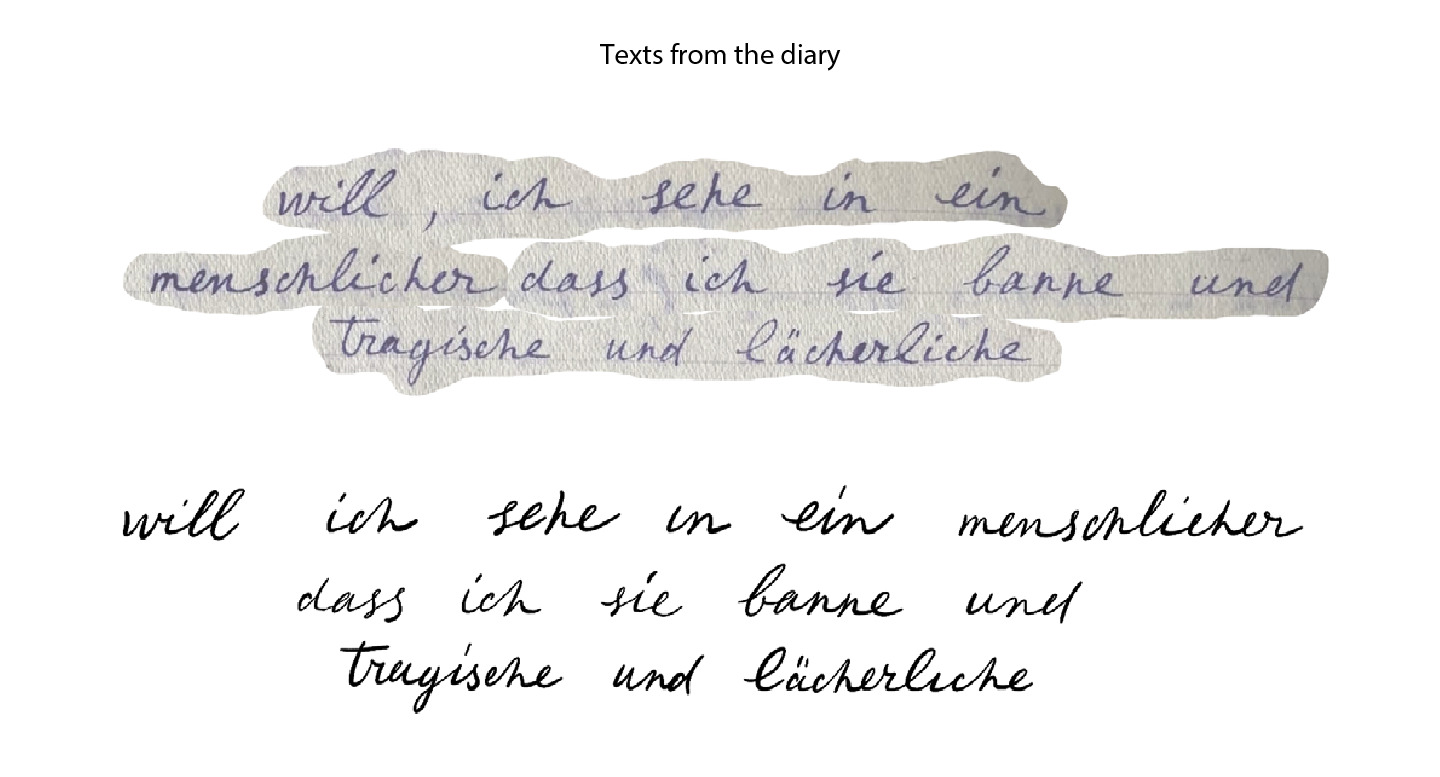 Texts from the diary
will, ich sehe in ein
menschlicher dass ich sie banne und
tragische und lächerliche
will ich sehe in ein menschlicher
dass ich sie banne und
tragische und lächerliche